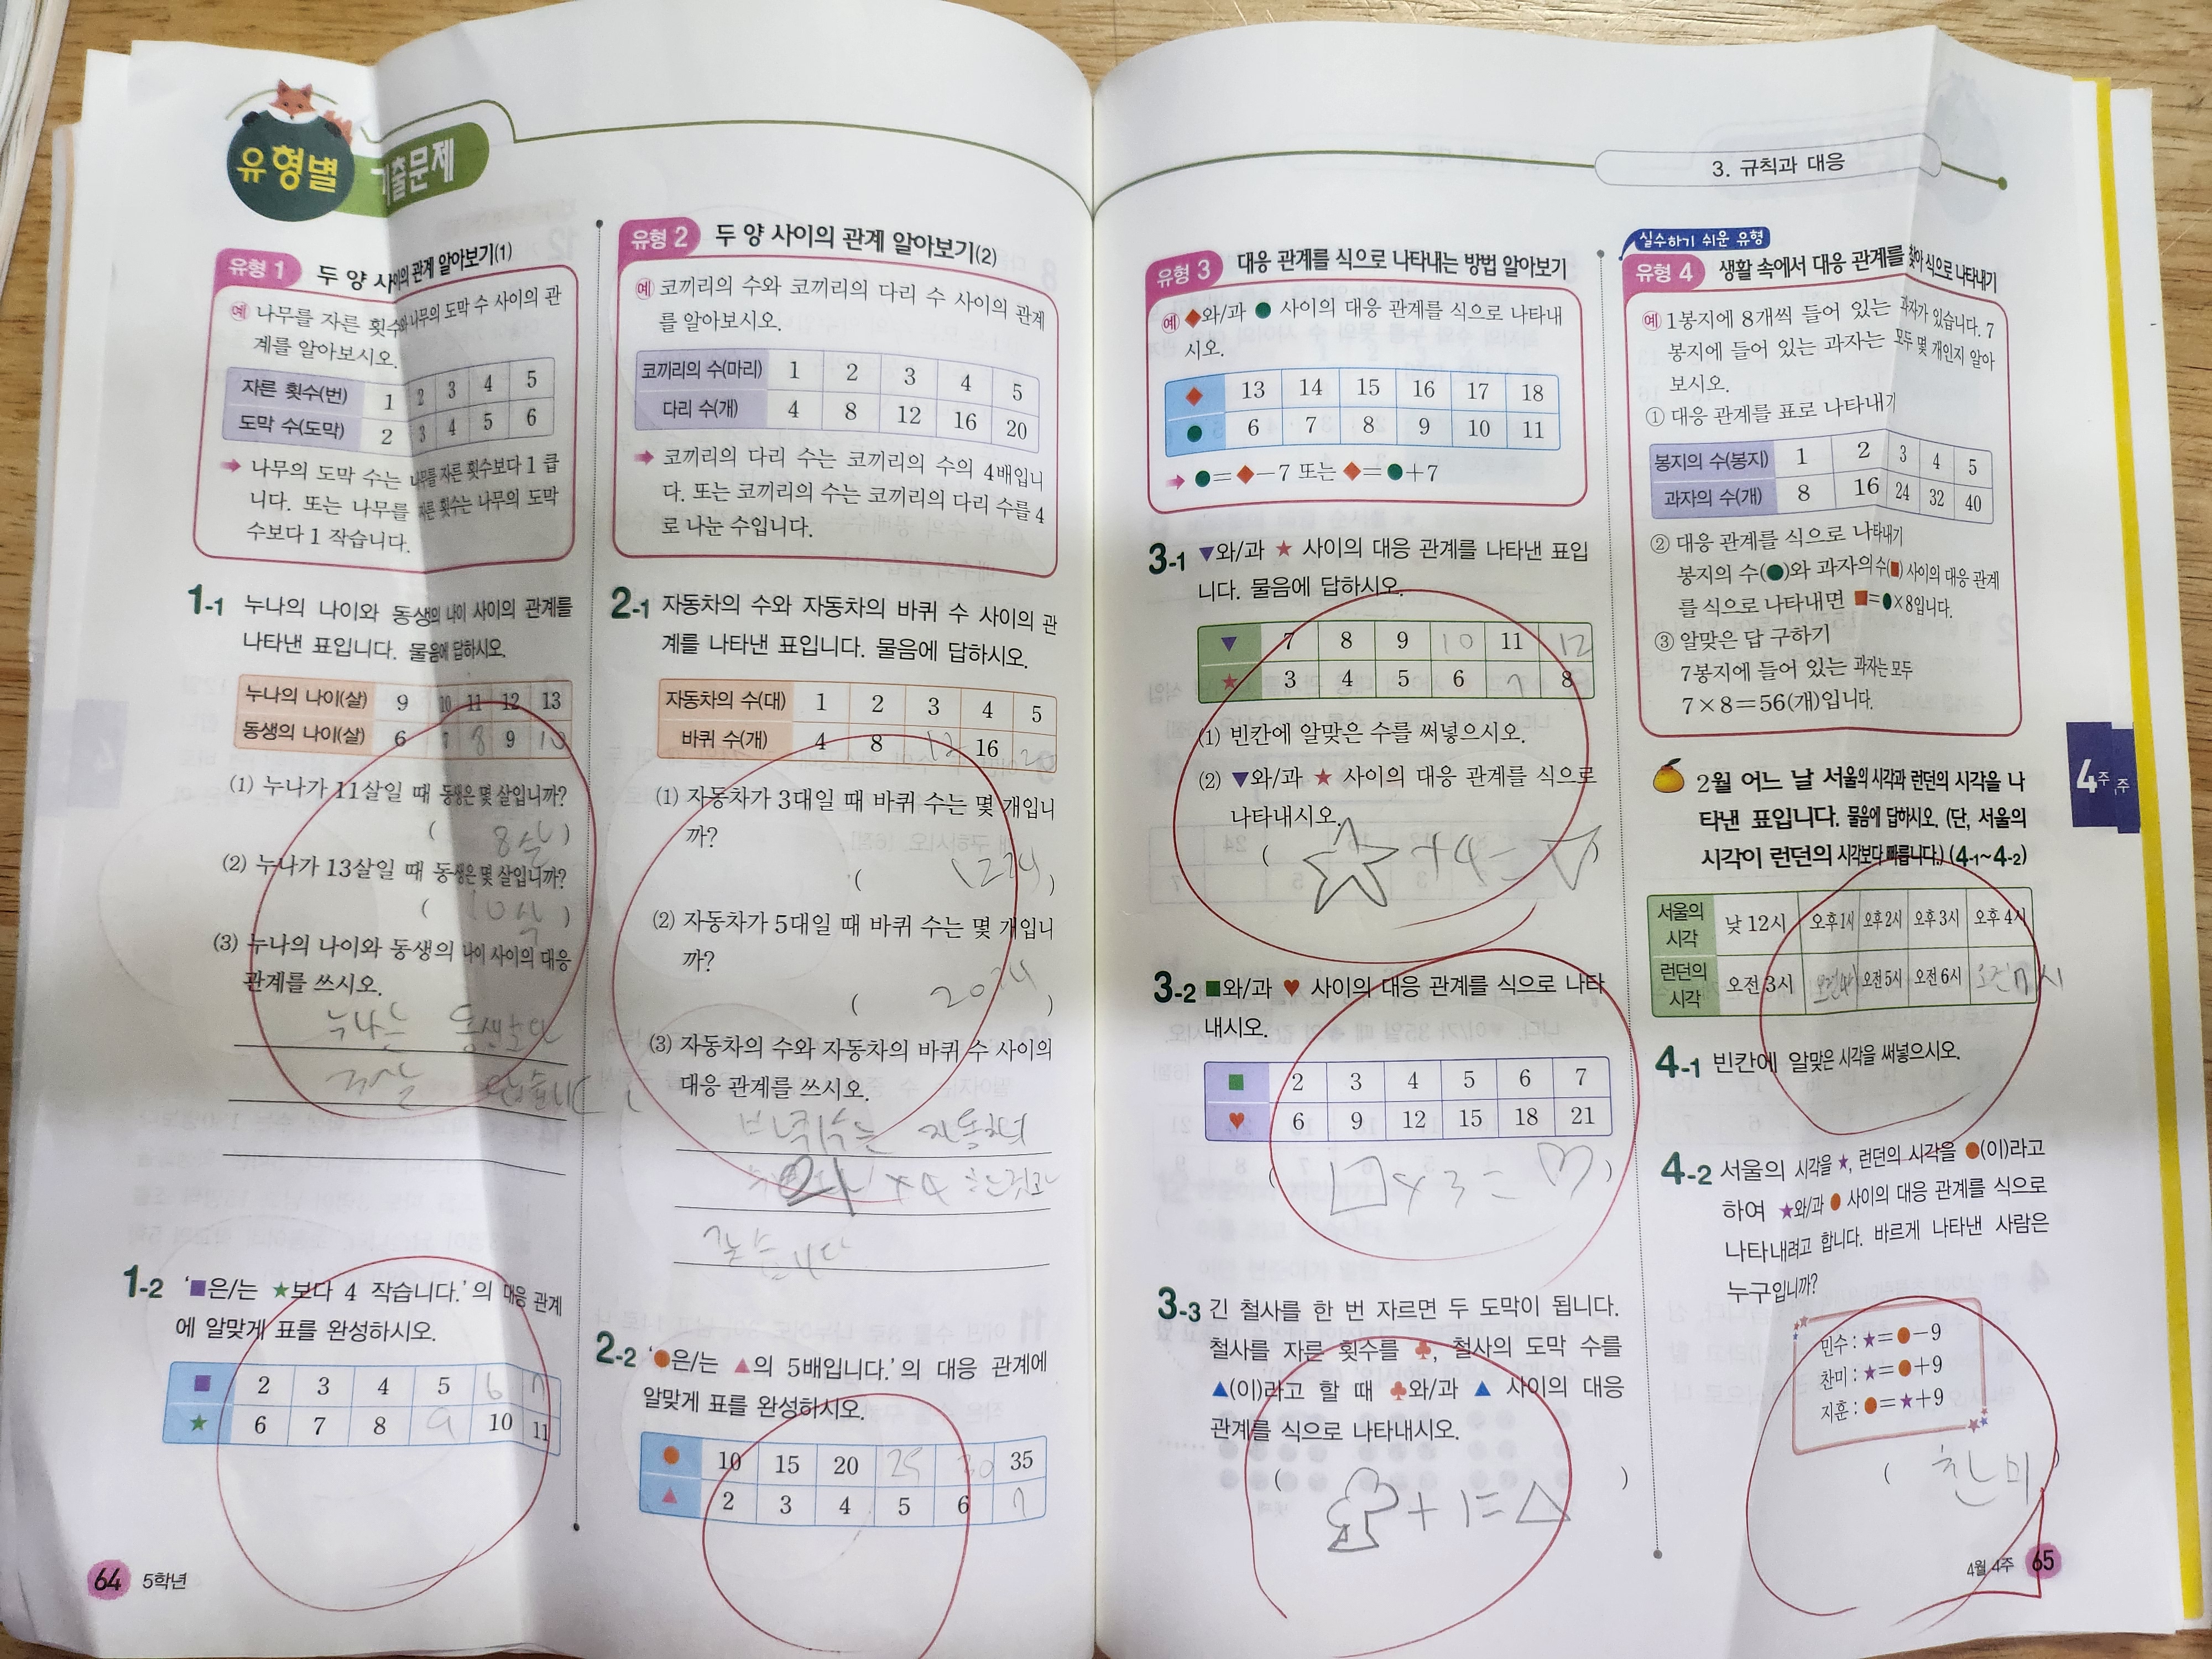 유형별 기출문제
유형 1 두 양 사이의 관계 알아보기(1)
예 나무를 자른 횟수와 나무의 도막 수 사이의 관
계를 알아보시오.
자른 횟수(번) 1 2 3 4 5
도막 수(도막) 2 3 4 5 6
➡ 나무의 도막 수는 나무를 자른 횟수보다 1 큽
니다. 또는 나무를 자른 횟수는 나무의 도막
수보다 1 작습니다.
1-1 누나의 나이와 동생의 나이 사이의 관계를
나타낸 표입니다. 물음에 답하시오.
누나의 나이(살) 9 10 11 12 13
동생의 나이(살) 6 7 8 9 10
(1) 누나가 11살일 때 동생은 몇 살입니까?
( 8살 )
(2) 누나가 13살일 때 동생은 몇 살입니까?
( 10살 )
(3) 누나의 나이와 동생의 나이 사이의 대응
관계를 쓰시오.
누나는 동생보다
3살 많습니다.
1-2 '■은/는 ★보다 4 작습니다.'의 대응 관계
에 알맞게 표를 완성하시오.
■ 2 3 4 5 6 7
★ 6 7 8 9 10 11
64 5학년
유형 2 두 양 사이의 관계 알아보기(2)
예 코끼리의 수와 코끼리의 다리 수 사이의 관계
를 알아보시오.
코끼리의 수(마리) 1 2 3 4 5
다리 수(개) 4 8 12 16 20
➡ 코끼리의 다리 수는 코끼리의 수의 4배입니
다. 또는 코끼리의 수는 코끼리의 다리 수를 4
로 나눈 수입니다.
2-1 자동차의 수와 자동차의 바퀴 수 사이의 관
계를 나타낸 표입니다. 물음에 답하시오.
자동차의 수(대) 1 2 3 4 5
바퀴 수(개) 4 8 12 16 20
(1) 자동차가 3대일 때 바퀴 수는 몇 개입니
까?
( 12개 )
(2) 자동차가 5대일 때 바퀴 수는 몇 개입니
까?
( 20개 )
(3) 자동차의 수와 자동차의 바퀴 수 사이의
대응 관계를 쓰시오.
바퀴수는 자동차
×4 한것과
같습니다
2-2 '●은/는 ▲의 5배입니다.'의 대응 관계에
알맞게 표를 완성하시오.
● 10 15 20 25 30 35
▲ 2 3 4 5 6 7
3. 규칙과 대응
유형 3 대응 관계를 식으로 나타내는 방법 알아보기
예 ◆와/과 ● 사이의 대응 관계를 식으로 나타내
시오.
◆ 13 14 15 16 17 18
● 6 7 8 9 10 11
➡ ●=◆−7 또는 ◆=●+7
3-1 ▼와/과 ★ 사이의 대응 관계를 나타낸 표입
니다. 물음에 답하시오.
▼ 7 8 9 10 11 12
★ 3 4 5 6 7 8
(1) 빈칸에 알맞은 수를 써넣으시오.
(2) ▼와/과 ★ 사이의 대응 관계를 식으로
나타내시오.
( ☆+4=▽ )
3-2 ■와/과 ♥ 사이의 대응 관계를 식으로 나타
내시오.
■ 2 3 4 5 6 7
♥ 6 9 12 15 18 21
( □×3=♡ )
3-3 긴 철사를 한 번 자르면 두 도막이 됩니다.
철사를 자른 횟수를 ♣, 철사의 도막 수를
▲(이)라고 할 때 ♣와/과 ▲ 사이의 대응
관계를 식으로 나타내시오.
( ♧+1=△ )
실수하기 쉬운 유형
유형 4 생활 속에서 대응 관계를 찾아 식으로 나타내기
예 1봉지에 8개씩 들어 있는 과자가 있습니다. 7
봉지에 들어 있는 과자는 모두 몇 개인지 알아
보시오.
① 대응 관계를 표로 나타내기
봉지의 수(봉지) 1 2 3 4 5
과자의 수(개) 8 16 24 32 40
② 대응 관계를 식으로 나타내기
봉지의 수(●)와 과자의 수(■) 사이의 대응 관계
를 식으로 나타내면 ■=●×8입니다.
③ 알맞은 답 구하기
7봉지에 들어 있는 과자는 모두
7×8=56(개)입니다.
2월 어느 날 서울의 시각과 런던의 시각을 나
타낸 표입니다. 물음에 답하시오. (단, 서울의
시각이 런던의 시각보다 빠릅니다.) (4-1~4-2)
서울의 시각 낮 12시 오후 1시 오후 2시 오후 3시 오후 4시
런던의 시각 오전 3시 오전 4시 오전 5시 오전 6시 오전 7시
4-1 빈칸에 알맞은 시각을 써넣으시오.
4-2 서울의 시각을 ★, 런던의 시각을 ●(이)라고
하여 ★와/과 ● 사이의 대응 관계를 식으로
나타내려고 합니다. 바르게 나타낸 사람은
누구입니까?
민수 : ★=●−9
찬미 : ★=●+9
지훈 : ●=★+9
( 찬미
4주
주
4월 4주 65